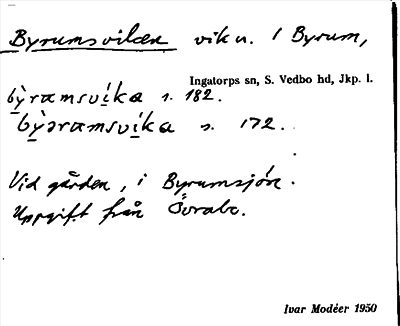 Byrumsviken vik u. 1 Byrum,
Ingatorps sn, S. Vedbo hd, Jkp. l.
bỳramsvíka s. 182.
bỳəramsvíka s. 172.
Vid gården, i Byrumsjön.
Uppgift från Övrabo.
Ivar Modéer 1950